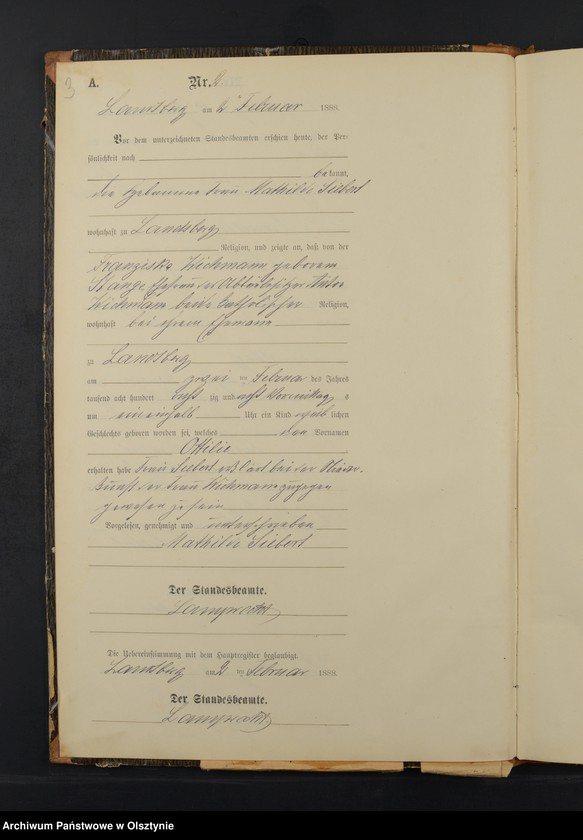 3
A. Nr. 2
Landsberg am 2 ten Februar 1888.
Vor dem unterzeichneten Standesbeamten erschien heute, der Per-
sönlichkeit nach
be kannt,
die Hebamme Frau Mathilde Siebert
wohnhaft zu Landsberg
Religion, und zeigte an, daß von der
Franziska Wichmann geborene
Stange Ehefrau des Anton
Wichmann beide katholischer Religion,
wohnhaft bei ihrem Ehemann
zu Landsberg
am zwei ten Februar des Jahres
tausend acht hundert acht zig und acht Vormittags
um ein einhalb Uhr ein Kind weib lichen
Geschlechts geboren worden sei, welches den Vornamen
Ottilie
erhalten habe Frau Siebert erklärt bei der Nieder-
kunft der Frau Wichmann zugegen
gewesen zu sein
Vorgelesen, genehmigt und unterschrieben
Mathilde Siebert
Der Standesbeamte.
Die Uebereinstimmung mit dem Hauptregister beglaubigt.
Landsberg am 2 ten Februar 1888.
Der Standesbeamte.
Archiwum Państwowe w Olsztynie